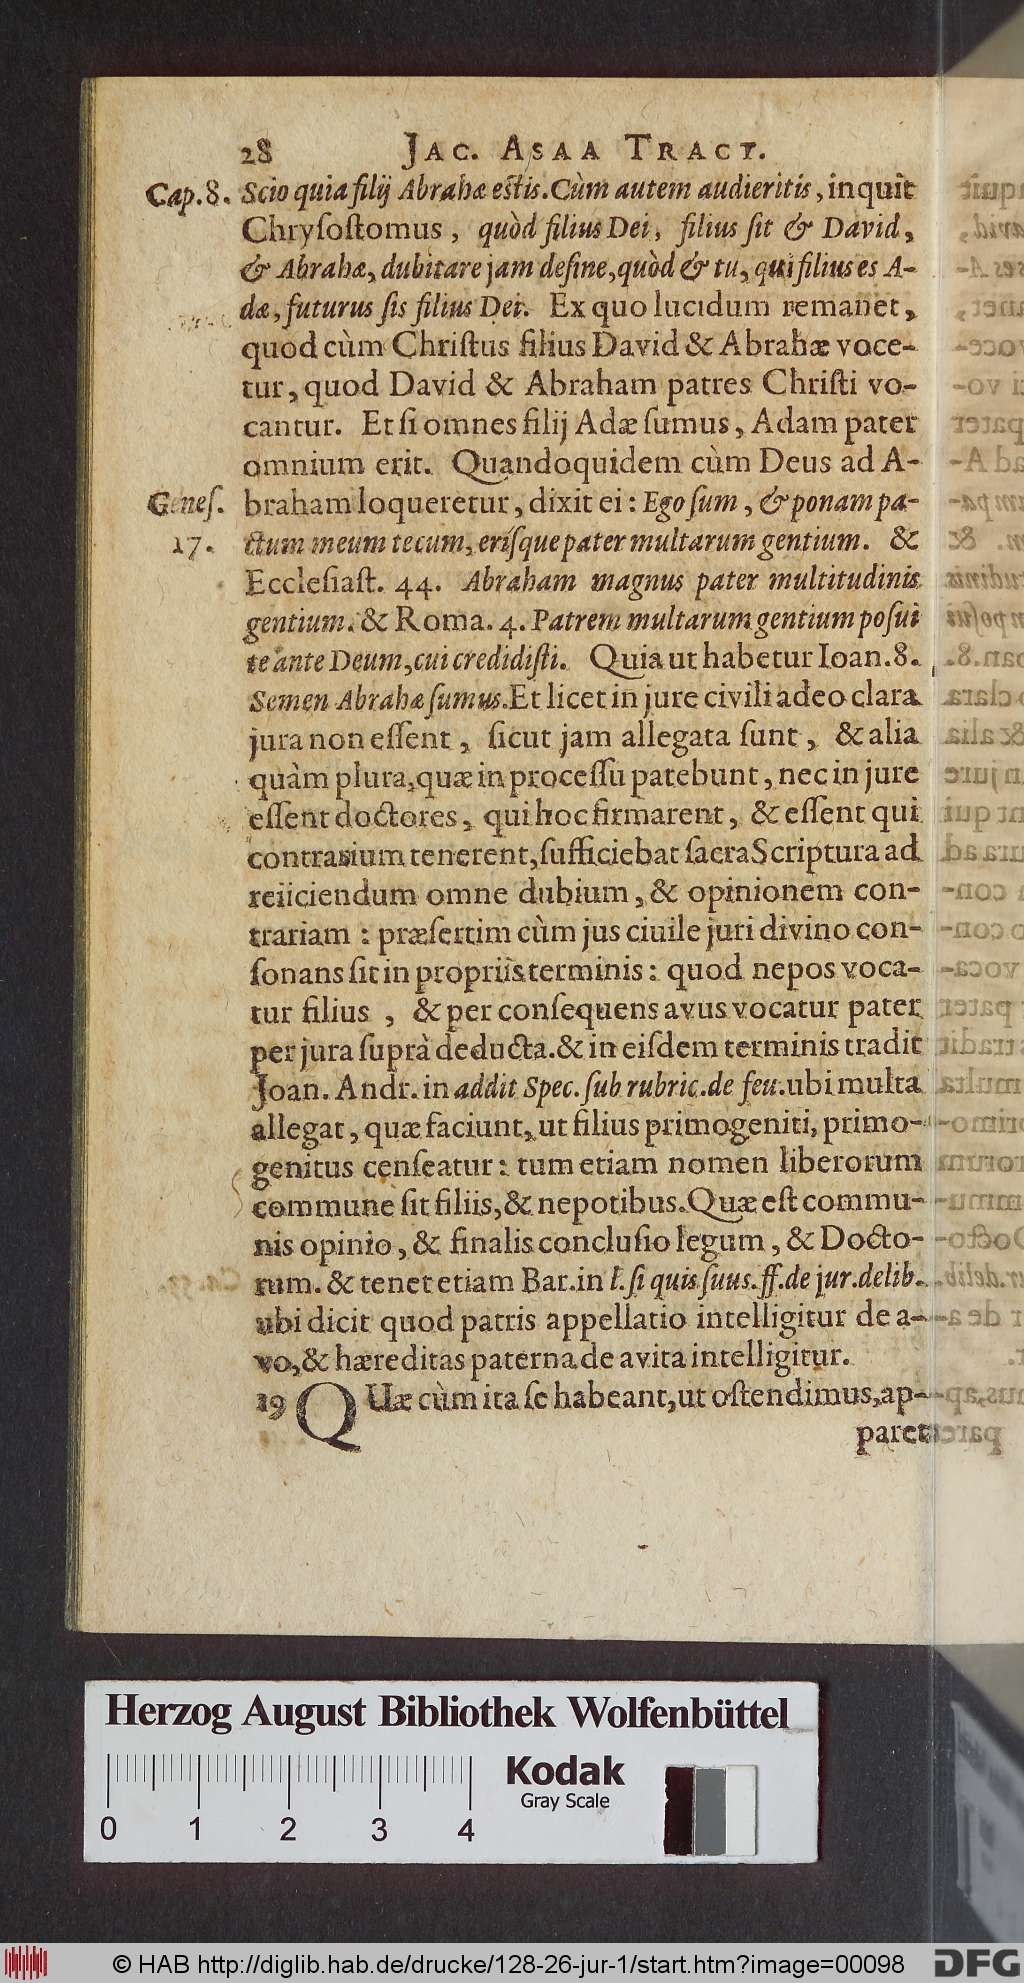 28 JAC. ASAA TRACT.
Cap. 8. Scio quia filij Abrahæ estis. Cùm autem audieritis, inquit
Chryſoſtomus, quòd filius Dei, filius ſit & David,
& Abrahæ, dubitare jam deſine, quòd & tu, qui filius es A-
dæ, futurus ſis filius Dei. Ex quo lucidum remanet,
quod cùm Chriſtus filius David & Abrahæ voce-
tur, quod David & Abraham patres Chriſti vo-
cantur. Et ſi omnes filij Adæ ſumus, Adam pater
omnium erit. Quandoquidem cùm Deus ad A-
Geneſ. braham loqueretur, dixit ei: Ego ſum, & ponam pa-
17. ctum meum tecum, eriſque pater multarum gentium. &
Eccleſiaſt. 44. Abraham magnus pater multitudinis
gentium. & Roma. 4. Patrem multarum gentium poſui
te ante Deum, cui credidiſti. Quia ut habetur Ioan. 8.
Semen Abrahæ ſumus. Et licet in jure civili adeo clara
jura non eſſent, ſicut jam allegata ſunt, & alia
quàm plura, quæ in proceſſu patebunt, nec in jure
eſſent doctores, qui hoc firmarent, & eſſent qui
contrarium tenerent, ſufficiebat ſacra Scriptura ad
reiiciendum omne dubium, & opinionem con-
trariam: præſertim cùm jus ciuile juri divino con-
ſonans ſit in propriis terminis: quod nepos voca-
tur filius, & per conſequens avus vocatur pater
per jura ſuprà deducta. & in eiſdem terminis tradit
Joan. Andr. in addit Spec. ſub rubric. de feu. ubi multa
allegat, quæ faciunt, ut filius primogeniti, primo-
genitus cenſeatur: tum etiam nomen liberorum
commune ſit filiis, & nepotibus. Quæ eſt commu-
nis opinio, & finalis concluſio legum, & Docto-
rum. & tenet etiam Bar. in l. ſi quis ſuus. ff. de jur. delib.
ubi dicit quod patris appellatio intelligitur de a-
vo, & hæreditas paterna de avita intelligitur.
19 QUæ cùm ita ſe habeant, ut oſtendimus, ap-
paret
Herzog August Bibliothek Wolfenbüttel
Kodak
Gray Scale
0 1 2 3 4
© HAB http://diglib.hab.de/drucke/128-26-jur-1/start.htm?image=00098
DFG